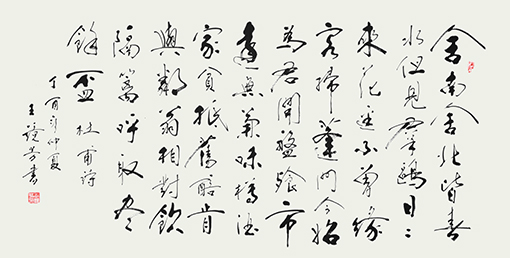 舍南舍北皆春
水但見羣鷗日〻
來花逕不曾緣
客掃蓬門今始
為君開盤飧市
遠無兼味樽酒
家貧秖舊醅肯
與鄰翁相對飲
隔籬呼取盡
餘盃 杜甫詩
丁酉年仲夏
王書